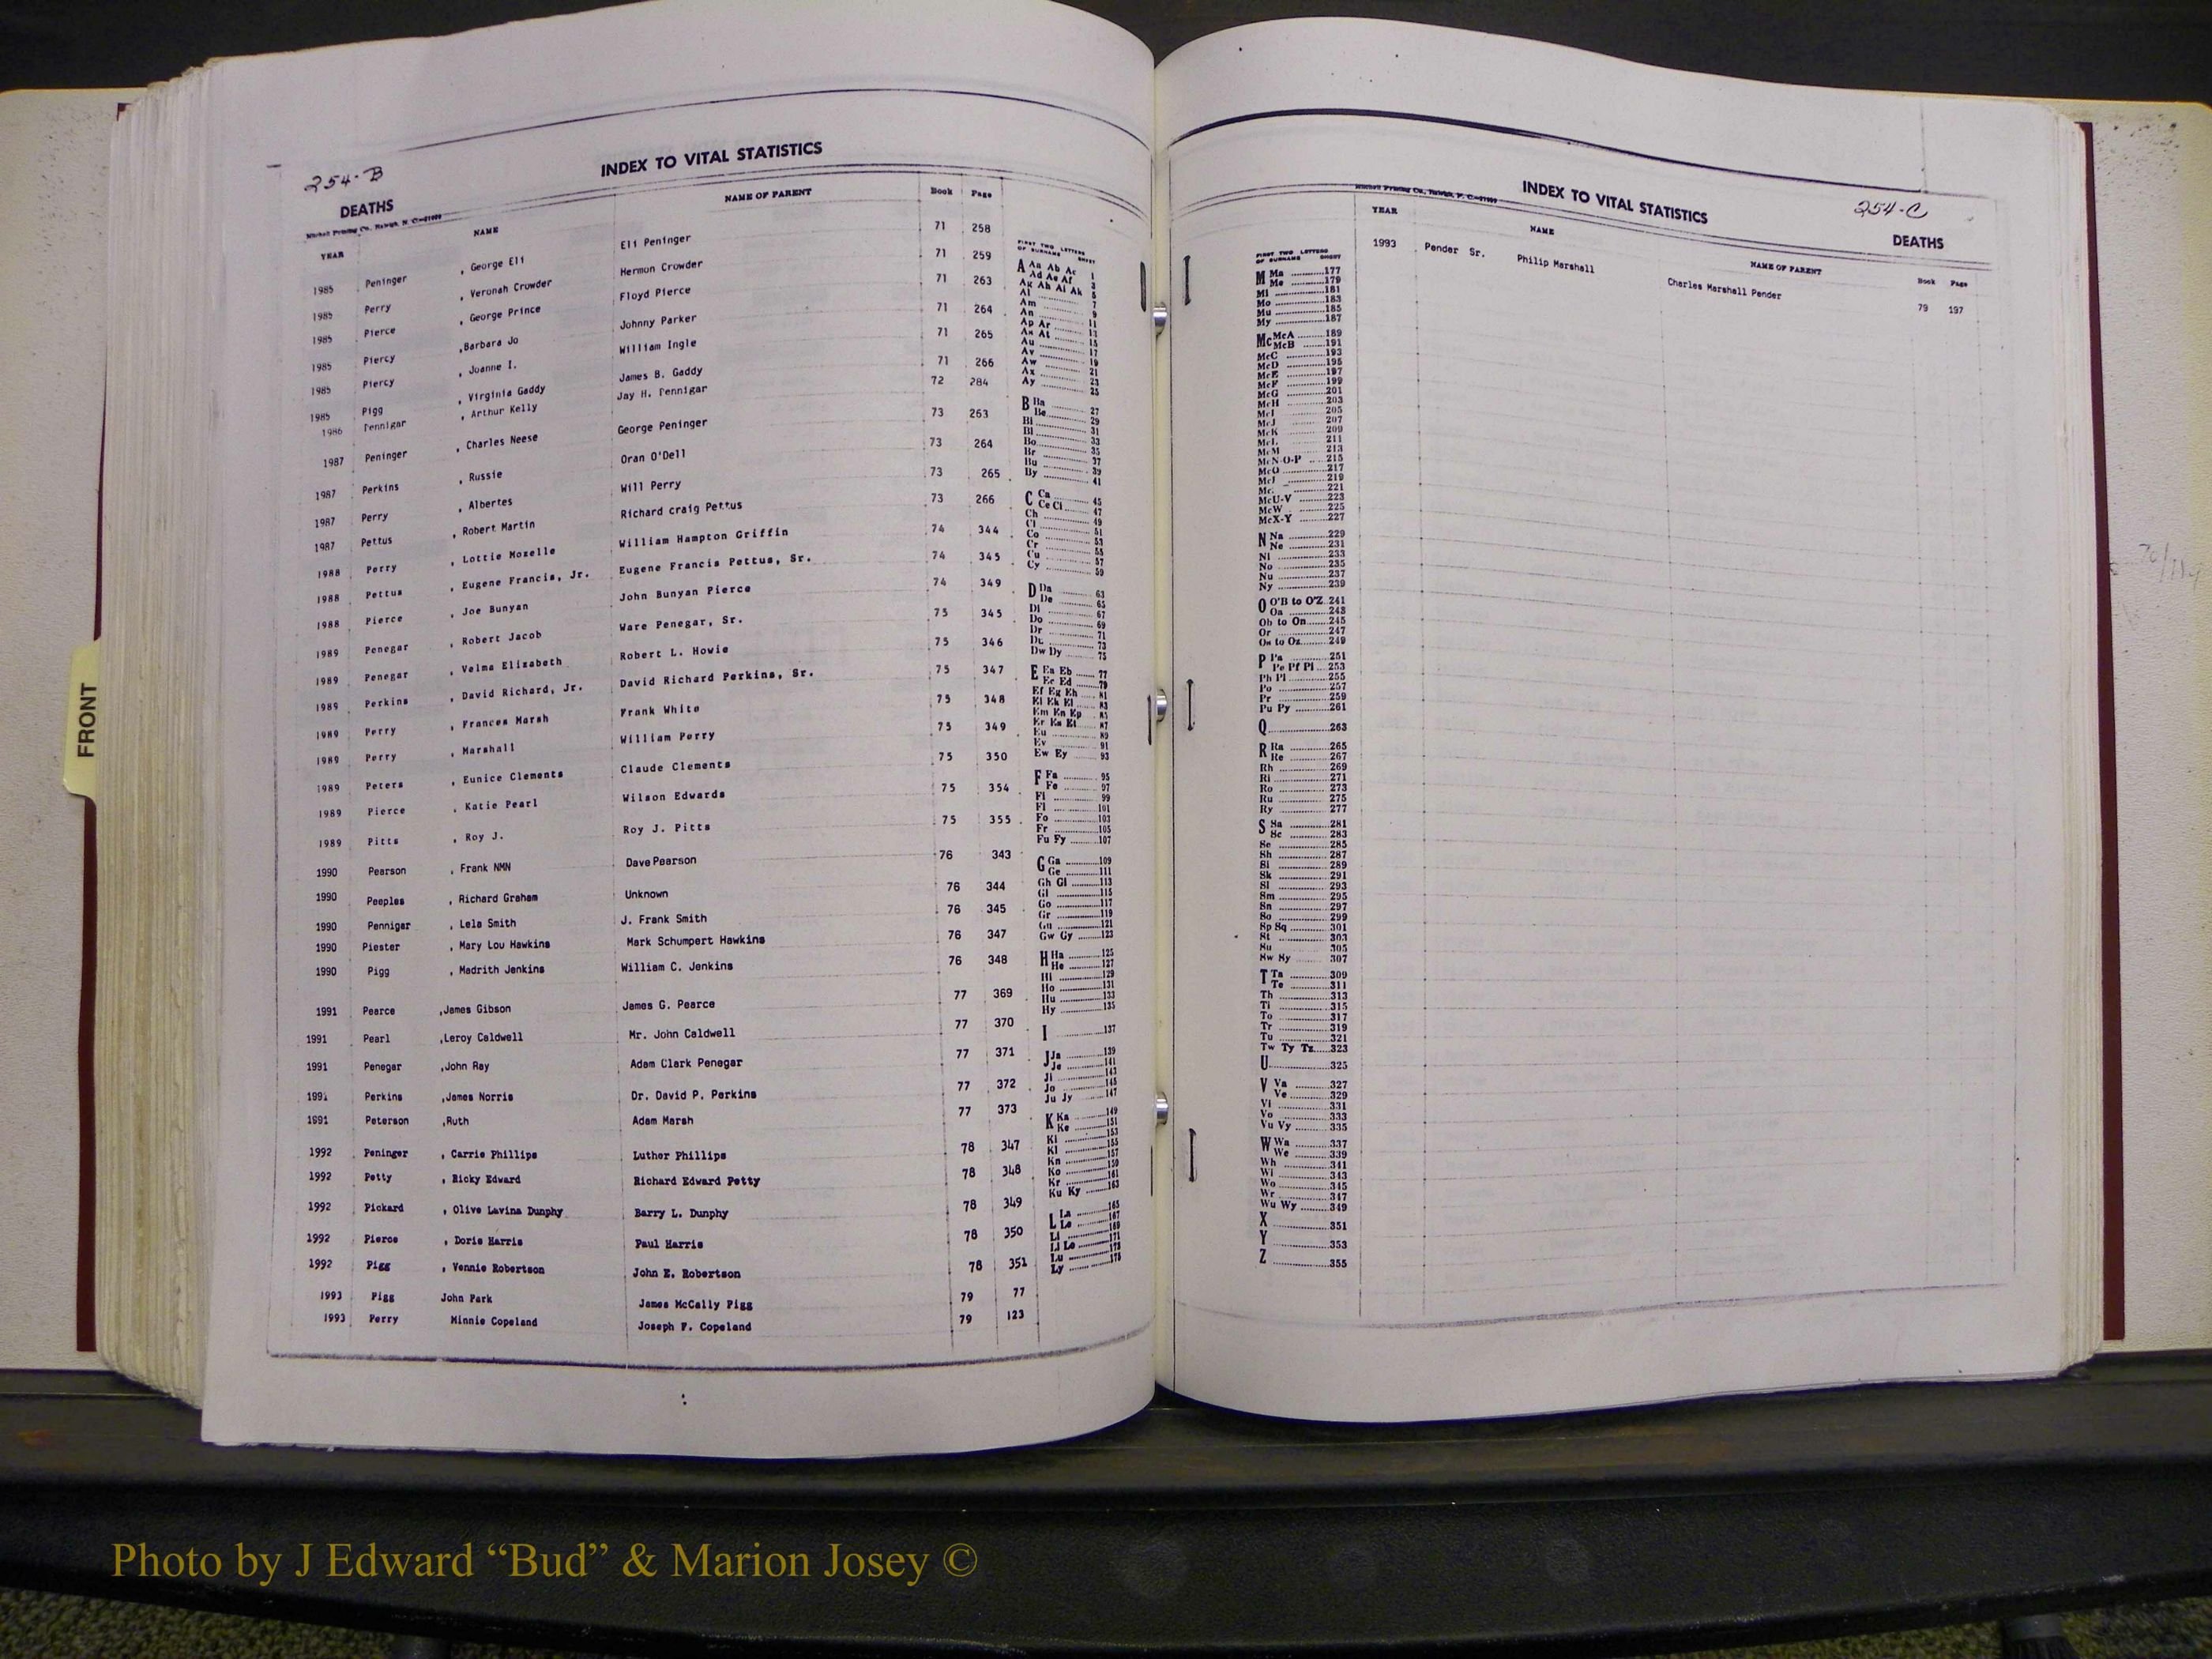 254-B
INDEX TO VITAL STATISTICS
DEATHS
Mitchell Printing Co., Raleigh, N. C.
YEAR NAME NAME OF PARENT Book Page
1985 Peninger , George Eli Eli Peninger 71 258
1985 Perry , Veronah Crowder Hermon Crowder 71 259
1985 Pierce , George Prince Floyd Pierce 71 263
1985 Piercy ,Barbara Jo Johnny Parker 71 264
1985 Piercy , Joanne I. William Ingle 71 265
1985 Pigg , Virginia Gaddy James B. Gaddy 71 266
1986 Pennigar , Arthur Kelly Jay H. Pennigar 72 284
1987 Peninger , Charles Neese George Peninger 73 263
1987 Perkins , Russie Oran O'Dell 73 264
1987 Perry , Albertes Will Perry 73 265
1987 Pettus , Robert Martin Richard craig Pettus 73 266
1988 Perry , Lottie Mozelle William Hampton Griffin 74 344
1988 Pettus , Eugene Francis, Jr. Eugene Francis Pettus, Sr. 74 345
1988 Pierce , Joe Bunyan John Bunyan Pierce 74 349
1989 Penegar , Robert Jacob Ware Penegar, Sr. 75 345
1989 Penegar , Velma Elizabeth Robert L. Howie 75 346
1989 Perkins , David Richard, Jr. David Richard Perkins, Sr. 75 347
1989 Perry , Frances Marsh Frank White 75 348
1989 Perry , Marshall William Perry 75 349
1989 Peters , Eunice Clements Claude Clements 75 350
1989 Pierce , Katie Pearl Wilson Edwards 75 354
1989 Pitts , Roy J. Roy J. Pitts 75 355
1990 Pearson , Frank NMN Dave Pearson 76 343
1990 Peeples , Richard Graham Unknown 76 344
1990 Pennigar , Lela Smith J. Frank Smith 76 345
1990 Piester , Mary Lou Hawkins Mark Schumpert Hawkins 76 347
1990 Pigg , Madrith Jenkins William C. Jenkins 76 348
1991 Pearce ,James Gibson James G. Pearce 77 369
1991 Pearl ,Leroy Caldwell Mr. John Caldwell 77 370
1991 Penegar ,John Ray Adam Clark Penegar 77 371
1991 Perkins ,James Norris Dr. David P. Perkins 77 372
1991 Peterson ,Ruth Adam Marsh 77 373
1992 Peninger , Carrie Phillips Luther Phillips 78 347
1992 Petty , Ricky Edward Richard Edward Petty 78 348
1992 Pickard , Olive Lavina Dunphy Barry L. Dunphy 78 349
1992 Pierce , Doris Harris Paul Harris 78 350
1992 Pigg , Vennie Robertson John E. Robertson 78 351
1993 Pigg John Park James McCally Pigg 79 77
1993 Perry Minnie Copeland Joseph F. Copeland 79 123
FIRST TWO LETTERS
OF SURNAME SHEET
A Aa Ab Ac 1
Ad Ae Af 3
Ag Ah Ai Ak 5
Al 7
Am 9
An 11
Ap Ar 13
As At 15
Au 17
Av 19
Aw 21
Ax 23
Ay 25
B Ba 27
Be 29
Bi 31
Bl 33
Bo 35
Br 37
Bu 39
By 41
C Ca 45
Ce Ci 47
Ch 49
Cl 51
Co 53
Cr 55
Cu 57
Cy 59
D Da 63
De 65
Di 67
Do 69
Dr 71
Du 73
Dw Dy 75
E Ea Eb 77
Ec Ed 79
Ef Eg Eh 81
Ei Ek El 83
Em En Ep 85
Er Es Et 87
Eu 89
Ev 91
Ew Ey 93
F Fa 95
Fe 97
Fi 99
Fl 101
Fo 103
Fr 105
Fu Fy 107
G Ga 109
Ge 111
Gh Gi 113
Gl 115
Go 117
Gr 119
Gu 121
Gw Gy 123
H Ha 125
He 127
Hi 129
Ho 131
Hu 133
Hy 135
I 137
J Ja 139
Je 141
Ji 143
Jo 145
Ju Jy 147
K Ka 149
Ke 151
Ki 153
Kl 155
Kn 157
Ko 159
Kr 161
Ku Ky 163
L La 165
Le 167
Li 169
Ll Lo 171
Lu 173
Ly 175
Mitchell Printing Co., Raleigh, N. C.
INDEX TO VITAL STATISTICS
254-C
DEATHS
YEAR NAME NAME OF PARENT Book Page
1993 Pender Sr. Philip Marshall Charles Marshall Pender 79 197
FIRST TWO LETTERS
OF SURNAME SHEET
M Ma 177
Me 179
Mi 181
Mo 183
Mu 185
My 187
Mc McA 189
McB 191
McC 193
McD 195
McE 197
McF 199
McG 201
McH 203
McI 205
McJ 207
McK 209
McL 211
McM 213
McN-O-P 215
McQ 217
219
221
McU-V 223
McW 225
McX-Y 227
N Na 229
Ne 231
Ni 233
No 235
Nu 237
Ny 239
O O'B to O'Z 241
Oa 243
Ob to On 245
Or 247
Os to Oz 249
P Pa 251
Pe Pf Pi 253
Ph Pl 255
Po 257
Pr 259
Pu Py 261
Q 263
R Ra 265
Re 267
Rh 269
Ri 271
Ro 273
Ru 275
Ry 277
S Sa 281
Sc 283
Se 285
Sh 287
Si 289
Sk 291
Sl 293
Sm 295
Sn 297
So 299
Sp Sq 301
St 303
Su 305
Sw Sy 307
T Ta 309
Te 311
Th 313
Ti 315
To 317
Tr 319
Tu 321
Tw Ty Tz 323
U 325
V Va 327
Ve 329
Vi 331
Vo 333
Vu Vy 335
W Wa 337
We 339
Wh 341
Wi 343
Wo 345
Wr 347
Wu Wy 349
X 351
Y 353
Z 355
FRONT
Photo by J Edward “Bud” & Marion Josey ©